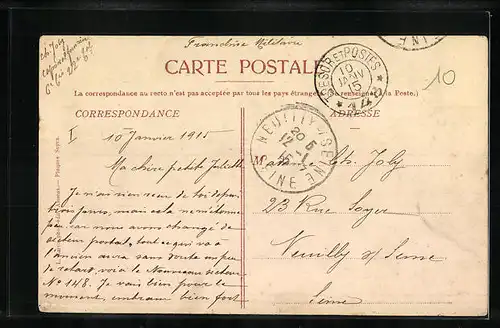 Franchise Militaire
Ch. Joly
CARTE POSTALE
TRESOR ET POSTES
10
JANV
15
10
La correspondance au recto n'est pas acceptée par tous les pays étrangers (Se renseigner à la Poste.)
CORRESPONDANCE
ADRESSE
NEUILLY S/ SEINE
SEINE
I
10 Janvier 1915
Ma chère petite Juliette
Je n'ai rien reçu de toi depuis
trois jours, mais cela ne m'étonne
pas car nous avons changé de
secteur postal, tout ce qui va à
l'ancien aura sans doute un peu
de retard, voici le Nouveau secteur
No 148. Je vais bien pour le
moment, embrasse bien fort
Joly
23 Rue Soyer
Neuilly s/ Seine
Seine